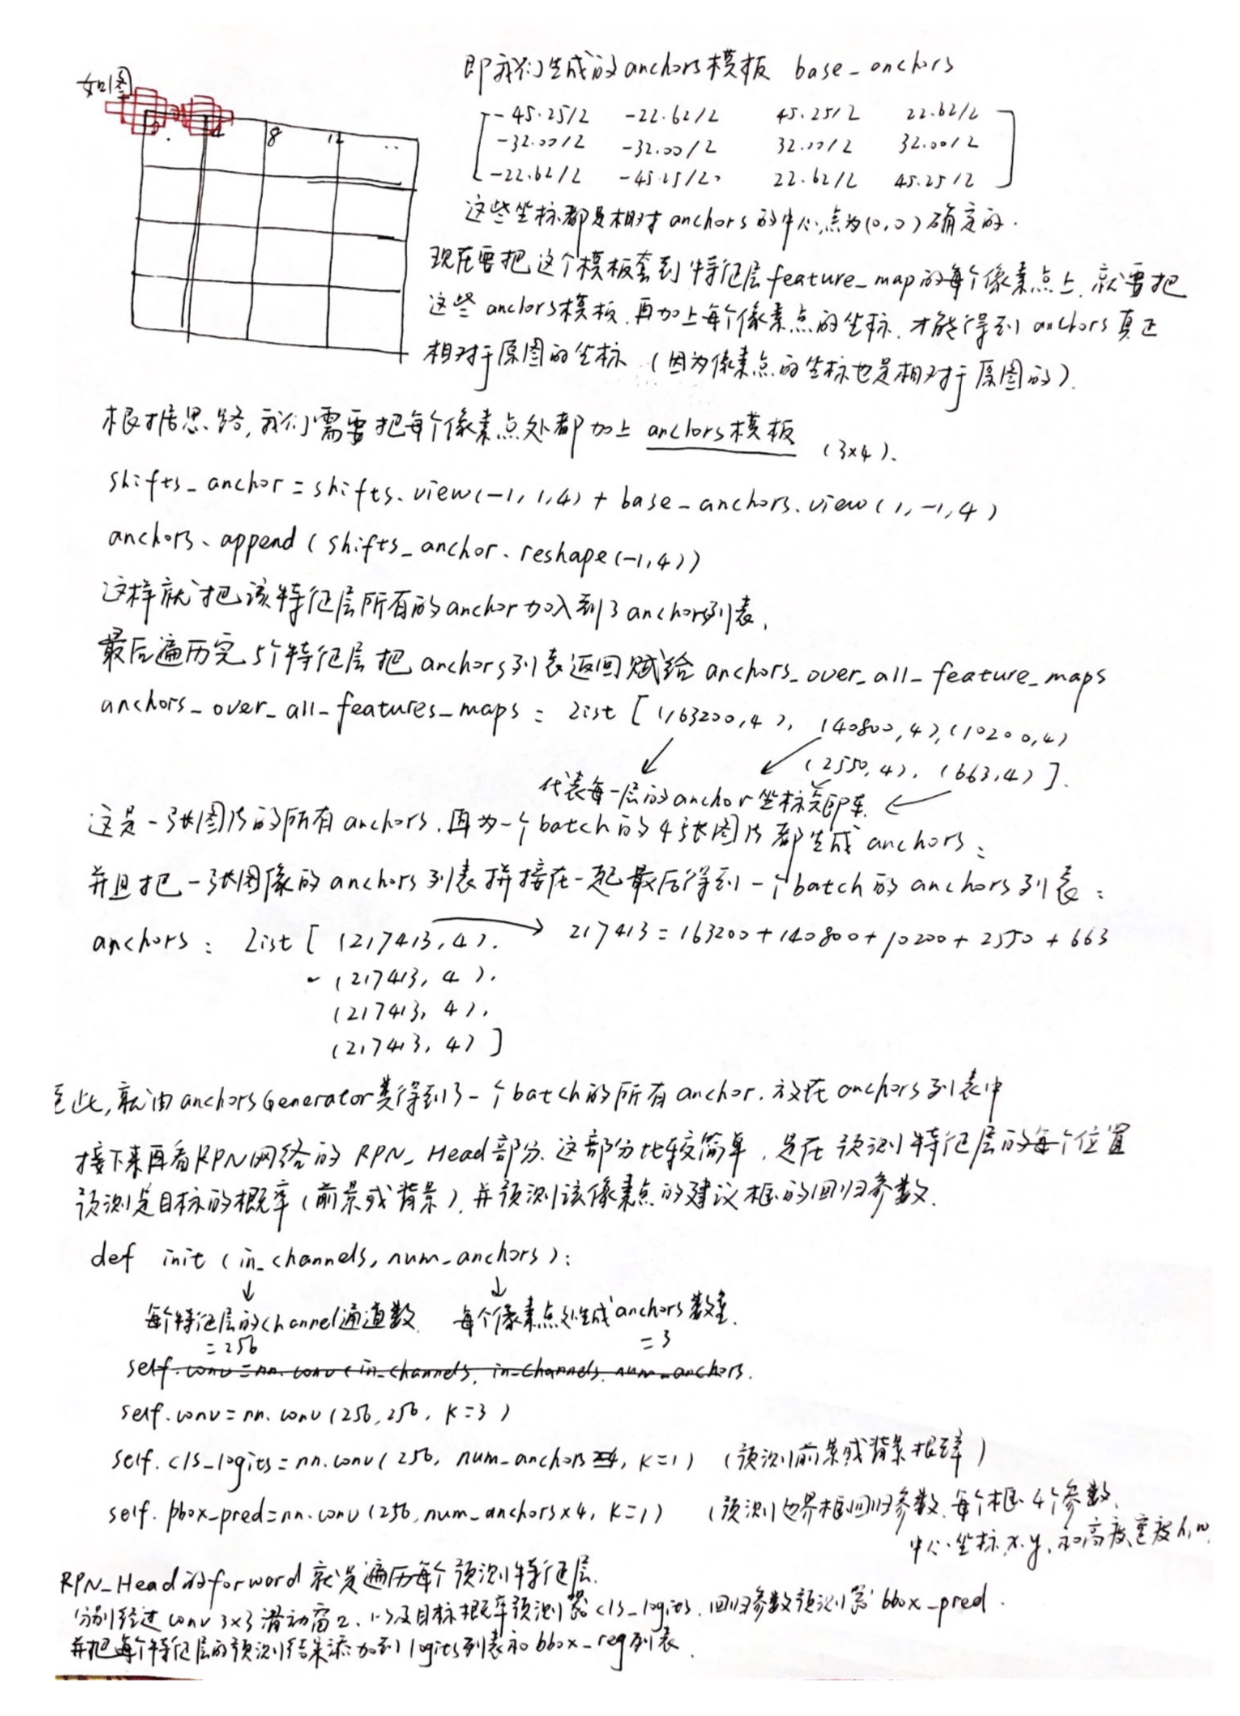 如图
8 12 ..
即我们生成的anchors模板 base_anchors
-45.25/2 -22.62/2 45.25/2 22.62/2
-32.00/2 -32.00/2 32.00/2 32.00/2
-22.62/2 -45.25/2 22.62/2 45.25/2
这些坐标都是相对anchors的中心点为(0,0)确定的.
现在要把这个模板套到特征层feature_map的每个像素点上.就要把
这些anchors模板.再加上每个像素点的坐标.才能得到anchors真正
相对于原图的坐标.(因为像素点的坐标也是相对于原图的).
根据思路,我们需要把每个像素点处都加上anchors模板 (3x4).
shifts_anchor = shifts.view(-1,1,4) + base_anchors.view(1,-1,4)
anchors.append(shifts_anchor.reshape(-1,4))
这样就把该特征层所有的anchor加入到了anchors列表,
最后遍历完5个特征层把anchors列表返回赋给anchors_over_all_feature_maps
anchors_over_all_features_maps = List [(163200,4), (40800,4),(10200,4)
(2550,4), (663,4)].
代表每一层的anchor坐标
这是一张图片的所有anchors.再为一个batch的4张图片都生成anchors;
并且把一张图像的anchors列表拼接在一起最后得到一个batch的anchors列表:
anchors: List [(217413,4), → 217413=163200+40800+10200+2550+663
(217413,4),
(217413,4),
(217413,4)]
至此,就由anchorsGenerator类得到了一个batch的所有anchor.放在anchors列表中
接下来再看RPN网络的RPN_Head部分.这部分比较简单.是在预测特征层的每个位置
预测是目标的概率(前景或背景).并预测该像素点的建议框的回归参数.
def init (in_channels, num_anchors):
每个特征层的channel通道数. 每个像素点处生成anchors数量.
=256 =3
self.conv=nn.conv(in_channels, in_channels, num_anchors.
self.conv=nn.conv(256,256, k=3)
self.cls_logits=nn.conv(256, num_anchors, k=1) (预测前景或背景概率)
self.bbox_pred=nn.conv(256,num_anchors×4, k=1) (预测边界框回归参数.每个框4个参数.
中心坐标x.y,和高度宽度h,w.
RPN_Head的forword就是遍历每个预测特征层.
分别经过conv 3×3滑动窗口.以及目标概率预测器cls_logits.回归参数预测器bbox_pred.
并把每个特征层的预测结果添加到logits列表和bbox_reg列表.